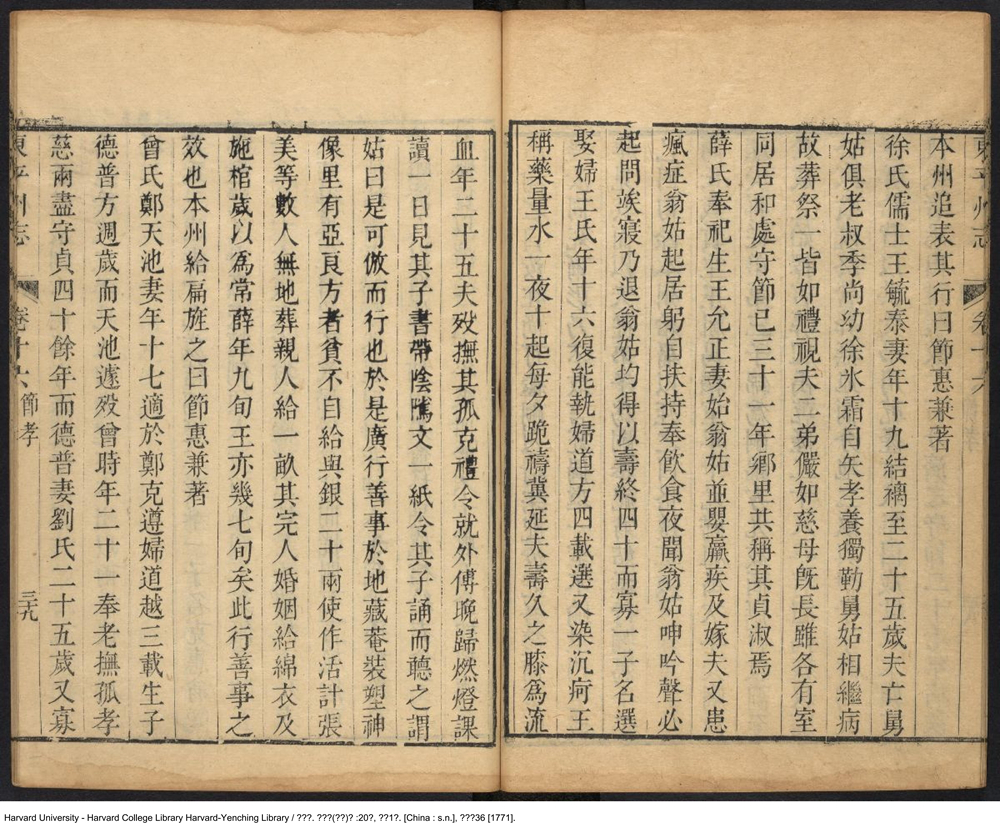 東平州志
卷十六
本州追表其行曰節惠兼著
徐氏儒士王毓泰妻年十九結褵至二十五歲夫亡舅
姑俱老叔季尚幼徐氷霜自矢孝養獨勤舅姑相繼病
故葬祭一皆如禮視夫二弟儼如慈母旣長雖各有室
同居和處守節已三十一年鄉里共稱其貞淑焉
薛氏奉祀生王允正妻始翁姑並嬰羸疾及嫁夫又患
瘋症翁姑起居躬自扶持奉飲食夜聞翁姑呻吟聲必
起問竢寢乃退翁姑均得以壽終四十而寡一子名選
娶婦王氏年十六復能執婦道方四載選又染沉疴王
稱藥量水一夜十起每夕跪禱冀延夫壽久之膝爲流
血年二十五夫殁撫其孤克禮令就外傅晚歸燃燈課
讀一日見其子書帶陰騭文一紙令其子誦而聽之謂
姑曰是可倣而行也於是廣行善事於地藏菴裝塑神
像里有亞良方者貧不自給與銀二十兩使作活計張
美等數人無地葬親人給一畝其完人婚姻給綿衣及
施棺歲以爲常薛年九旬王亦幾七旬矣此行善事之
效也本州給扁旌之曰節惠兼著
曾氏鄭天池妻年十七適於鄭克遵婦道越三載生子
德普方週歲而天池遽殁曾時年二十一奉老撫孤孝
慈兩盡守貞四十餘年而德普妻劉氏二十五歲又寡
東平州志
卷十六
節孝
三十九
Harvard University - Harvard College Library Harvard-Yenching Library / ???. ???(??)? :20?, ??1?. [China : s.n.], ???36 [1771].